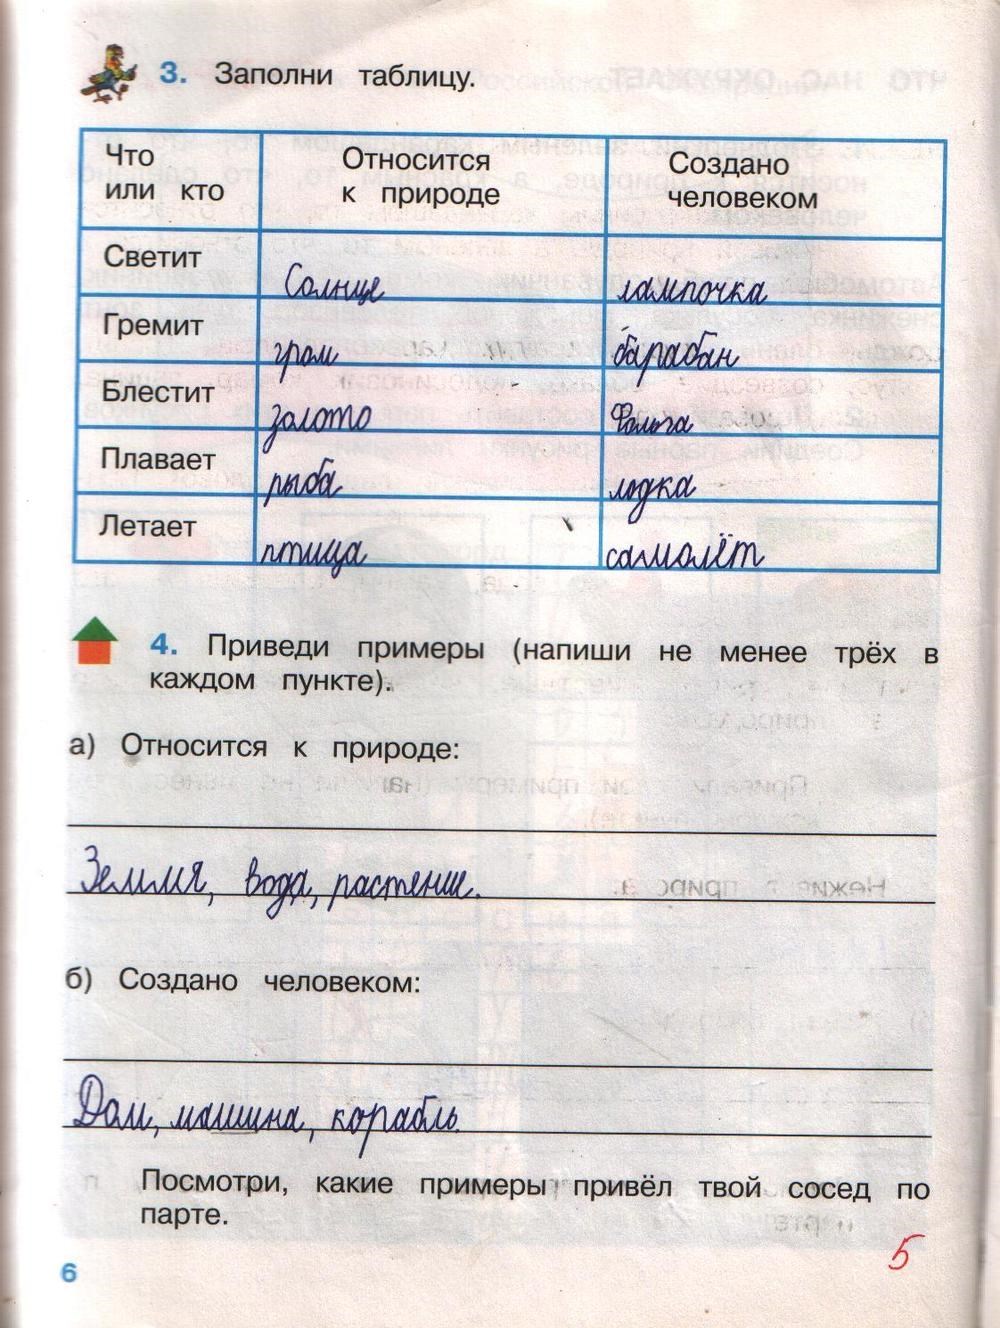 3. Заполни таблицу.
Что или кто Относится к природе Создано человеком
Светит Солнце лампочка
Гремит гром барабан
Блестит золото Фольга
Плавает рыба лодка
Летает птица самолёт
4. Приведи примеры (напиши не менее трёх в
каждом пункте).
а) Относится к природе:
Земля, вода, растение.
б) Создано человеком:
Дом, машина, корабль.
Посмотри, какие примеры привёл твой сосед по
парте.
5
6